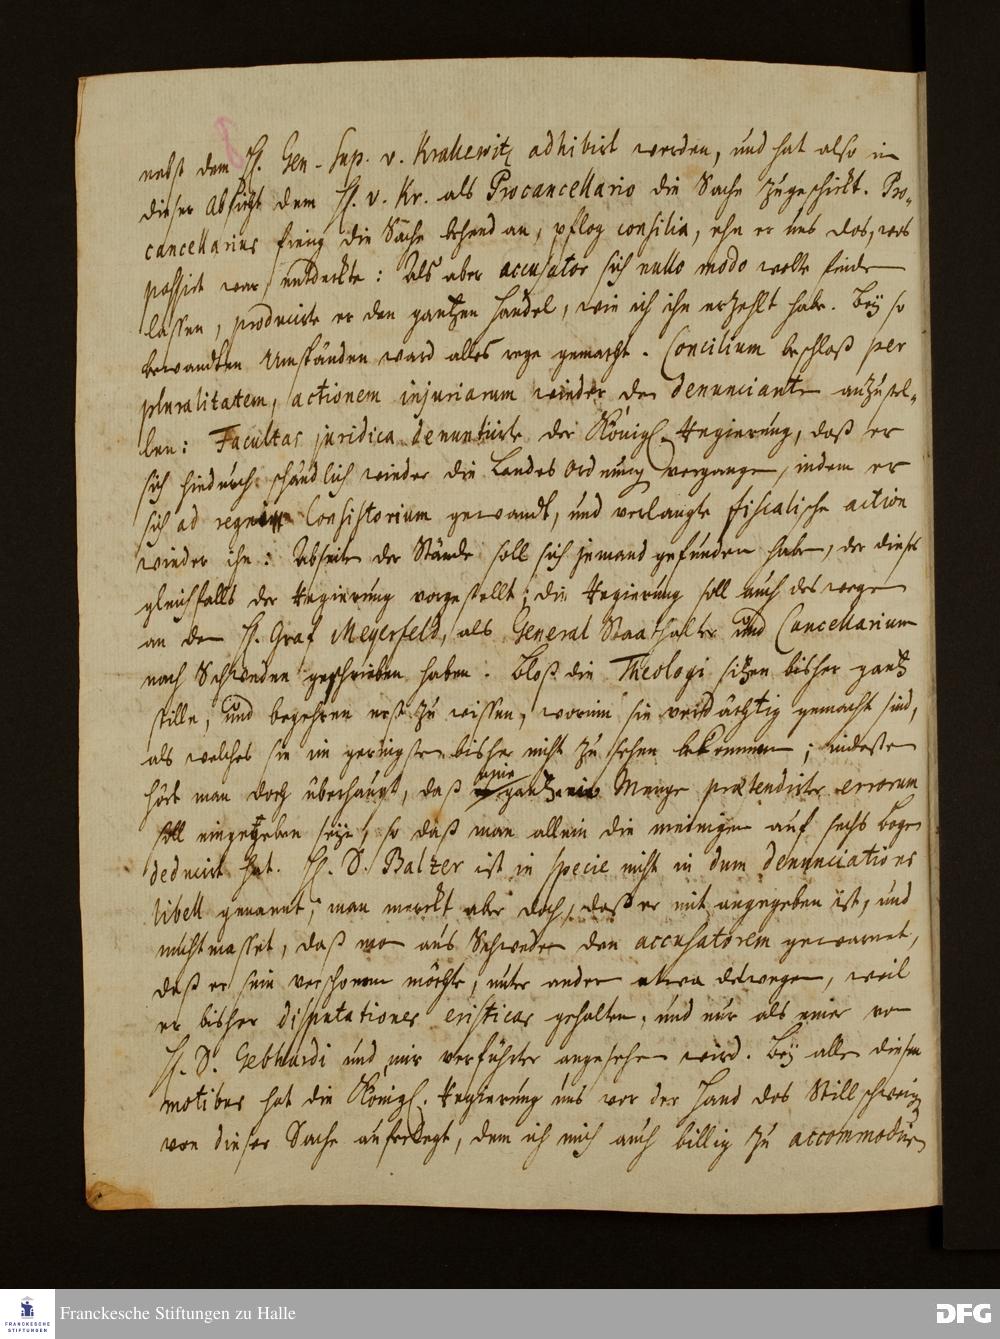 8
nebst dem H. Gen-Sup. v. Krakewitz adhibirt werden, und hat also in
dieser Absicht dem H. v. Kr. als Procancellario die Sache zugeschickt. Pro-
cancellarius fieng die Sache behend an, pflog consilia, ehe er uns das, was
passirt war, entdeckte: Als aber accusator sich nullo modo wolte finden
lassen, producirte er den gantzen Handel, wie ich ihn erzehlt habe. Bey so
bewandten Umständen ward alles rege gemacht. Concilium beschloß per
pluralitatem, actionem injuriarum wieder den denuncianten anzustel-
len: Facultas juridica denuntiirte der Königl. Regierung, daß er
sich hiedurch schändlich wieder die Landes Ordnung vergangen, indem er
sich ad regium Consistorium gewandt, und verlangte fiscalische action
wieder ihn: Abseiten der Stände soll sich jemand gefunden haben, der dieses
gleichfalls der Regierung vorgestellt; die Regierung soll auch deswegen
an den H. Graf Meyerfeld, als General Staathalter und Cancellarium
nach Schweden geschrieben haben. Bloß die Theologi sitzen bisher gantz
stille, und begehren erst zu wissen, worinn sie verdächtig gemacht sind,
als welches sie im geringsten bisher nicht zu sehen bekommen; indessen
hört man doch überhaupt, daß eine gantze Menge prætendirter errorum
soll eingegeben seyn, so daß man allein die meinigen auf sechs bogen
deducirt hat. H. D. Balzer ist in specie nicht in dem denunciations
libell genannt; man merckt aber doch, daß er mit angegeben ist, und
muthmasset, daß man aus Schweden den accusatorem gewarnet,
daß er sein verschonen möchte, unter andern etwa deswegen, weil
er bisher disputationes eristicas gehalten, und nur als einer von
H. D. Gebhardi und mir verführter angesehen wird. Bey allen diesen
motibus hat die Königl. Regierung uns vor der Hand das Stillschweigen
von dieser Sache auferlegt, dem ich mich auch billig zu accommodiren
Franckesche Stiftungen zu Halle
FRANCKESCHE
STIFTUNGEN
DFG